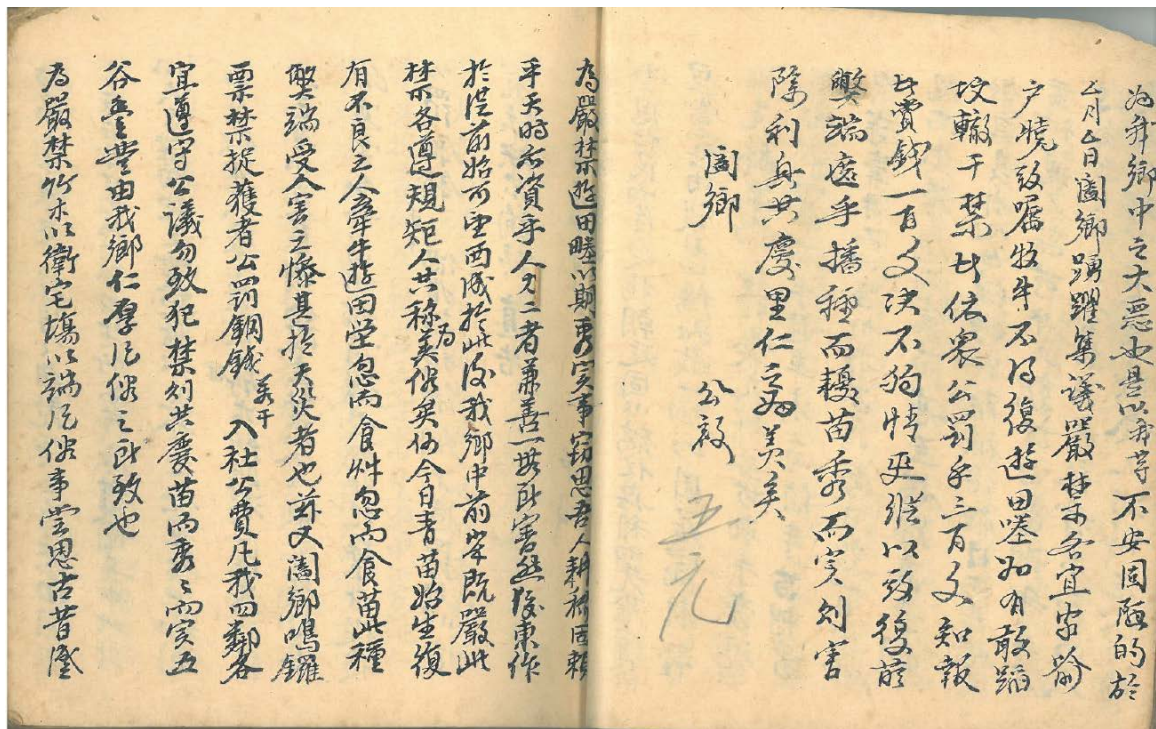 為我鄉中之大惡也是以我等不安固陋的於
△月△日闔鄉踴躍集議嚴禁各宜家喻
户曉致囑牧牛不得復遊田塍如有敢蹈
故轍干禁者依眾公罰手三百文知報
者賞錢一百文决不狥情延縱以致復萌
弊端庶乎播種而耰苗秀而实則害
除利興共慶里仁之為美矣
闔鄉 公啟
五元
為嚴禁遊田塍以期秀实事窃思吾人耕種固賴
乎天時亦資乎人力二者兼善一無所害然後東作
於從前始可望西成於此際我鄉中前年既嚴此
禁各遵規矩人共称為美俗矣何今日青苗始生復
有不良之人牽牛遊田塋忽而食艸忽而食苗此種
弊端受害之慘甚於天災者也茲又闔鄉鳴鑼
票禁捉獲者公罰銅錢若干入社公費凡我四鄰各
宜遵守公議勿致犯禁則共慶苗而秀秀而实五
谷豐豐由我鄉仁厚風俗之所致也
為嚴禁竹木以衛宅場以端風俗事嘗思古昔盛